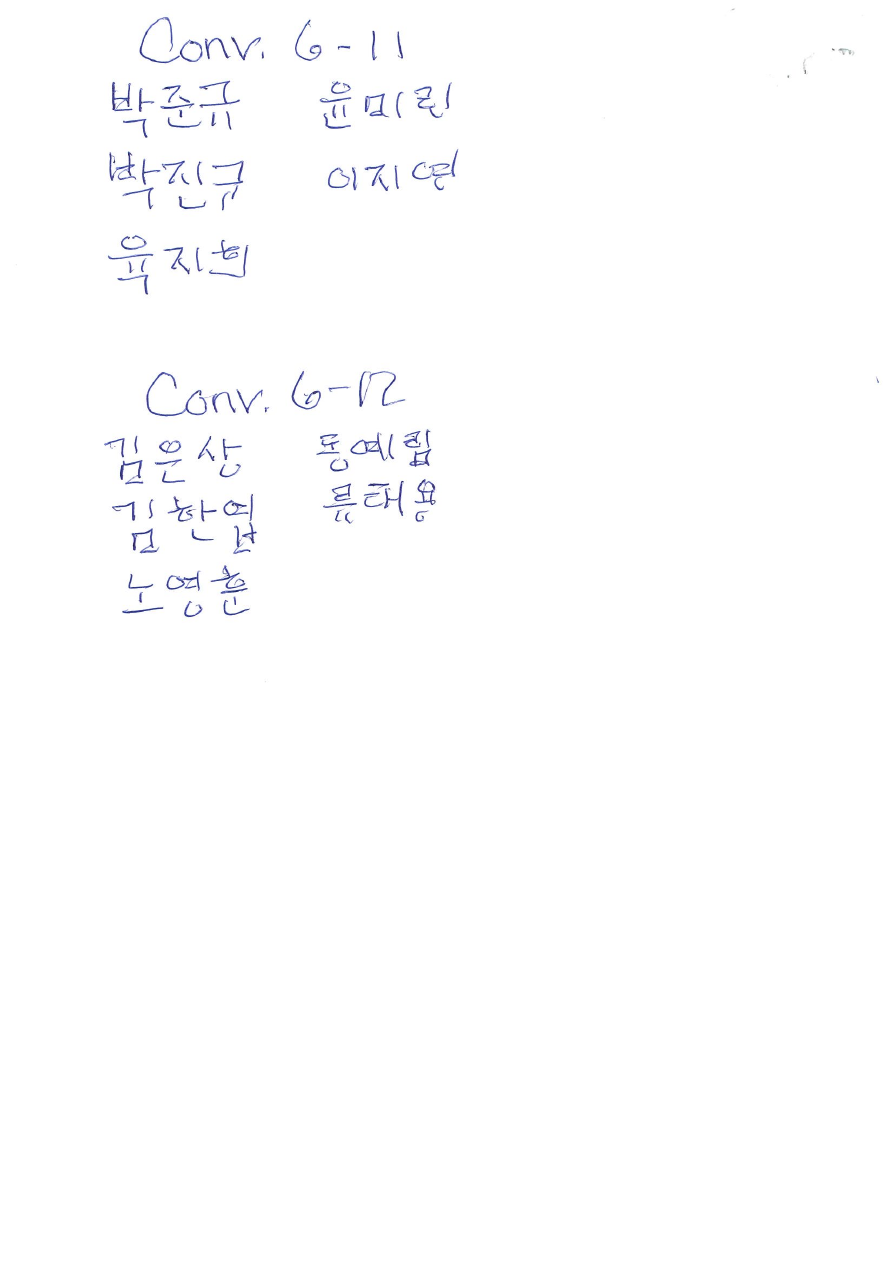 Conv. 6-11
박준규 윤미린
박진규 이지연
육지희
Conv. 6-12
김은상 동예림
김한엽 류태용
노영훈